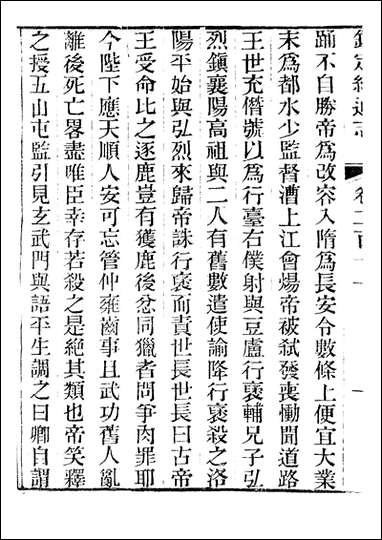 欽定續通志 卷二百十一
踊不自勝帝為改容入隋為長安令數條上便宜大業
末為都水少監督漕上江會煬帝被弒發喪慟聞道路
王世充僭號以為行臺右僕射與豆盧行褒輔兄子弘
烈鎮襄陽高祖與二人有舊數遣使諭降行褒殺之洛
陽平始與弘烈來歸帝誅行褒而責世長世長曰古帝
王受命比之逐鹿豈有獲鹿後忿同獵者問爭肉罪耶
今陛下應天順人安可忘管仲雍齒事且武功舊人亂
離後死亡畧盡唯臣幸存若殺之是絕其類也帝笑釋
之授玉山屯監引見玄武門與語平生調之曰卿自謂